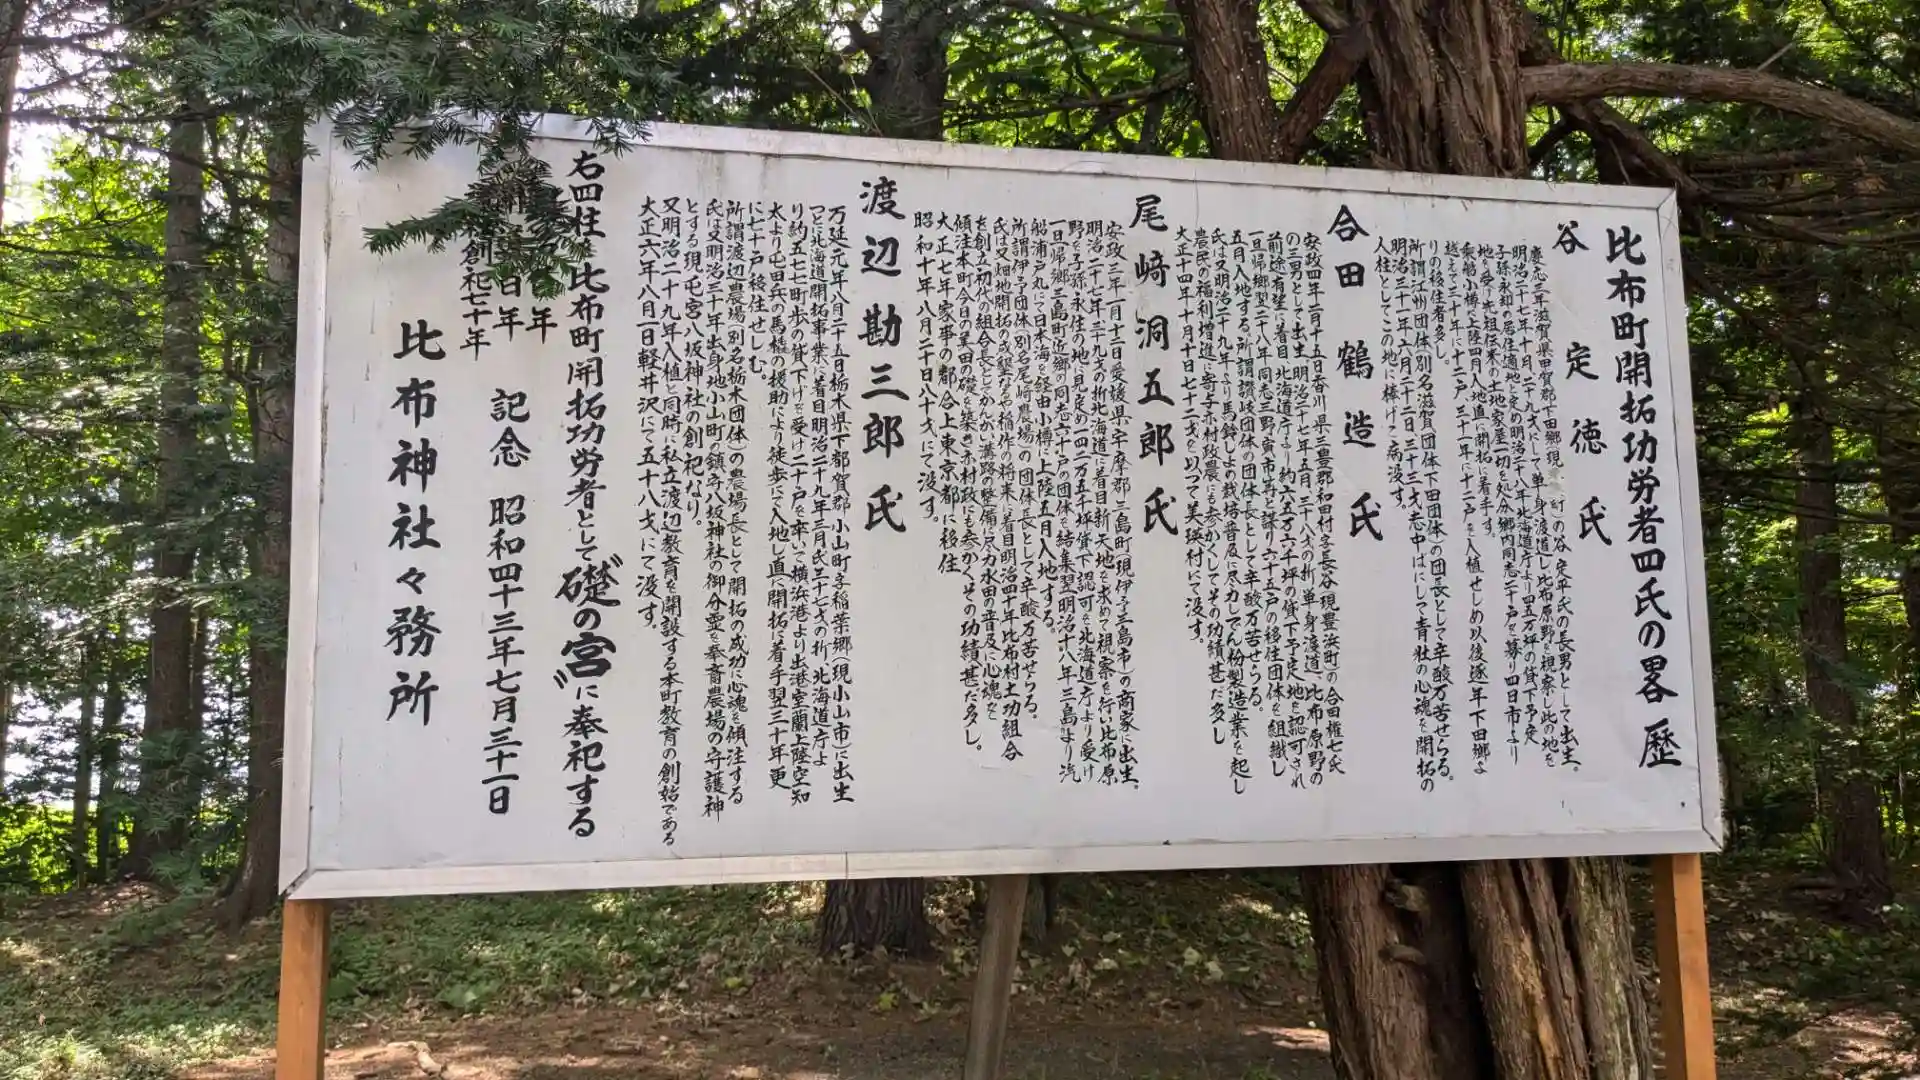 比布町開拓功労者四氏の畧歴
谷定徳氏
慶応三年滋賀県甲賀郡下田郷現 町の谷定平氏の長男として出生。
明治二十七年十月、二十九才にして単身渡道し比布原野を視察し此の地を
子孫永却の居住適地と定め明治二十八年北海道庁より四五万坪の貸下予定
地を受け先祖伝来の土地家屋一切を処分郷内同志二十戸を募り四日市より
乗船小樽に上陸四月入地直に開拓に着手す。
越えて三十年に十二戸、三十一年に十二戸を入植せしめ以後逐年下田郷よ
りの移住者多し。
所謂江州団体(別名滋賀団体下田団体)の団長として辛酸万苦せらる。
明治三十一年六月二十二日三十三才志中ばにして青壮の心魂を開拓の
人柱としてこの地に捧げて病没す。
合田鶴造氏
安政四年二月十五日香川県三豊郡和田村字長谷(現豊浜町)の合田権七氏
の三男として出生、明治二十七年五月、三十八才の折単身渡道、比布原野の
前途有望に着目北海道庁より約六五万六千坪の貸下予定地を認可され
一旦帰郷翌二十八年同志三野寅市等と謀り六十五戸の移住団体を組織し
五月入地する。所謂讃岐団体の団体長として辛酸万苦せらる。
氏は又明治二十九年より馬鈴しよの栽培普及に尽力しでん粉製造業を起し
農民の福利増進に寄与亦村政農にも参かくしてその功績甚だ多し
大正十四年十月十日七十二才を以つて美瑛村にて没す。
尾﨑洞五郎氏
安政三年一月十三日愛媛県宇摩郡三島町(現伊予三島市)の商家に出生。
明治二十七年三十九才の折北海道に着目新天地を求めて視察を行い比布原
野を子孫永住の地に見定め一四二万五千坪貸下認可を北海道庁より受け
一旦帰郷三島町近郷の同志六十戸の団体を結集翌明治二十八年三島より汽
船浦戸丸にて日本海を経由小樽に上陸五月入地する。
所謂伊予団体(別名尾﨑農場)の団体長として辛酸万苦せらる。
氏は又畑地開拓の成墾なるや稲作の将来に着目明治四十年比布村土功組合
を創立初代の組合長としてかんがい溝路の整備に尽力水田の普及に心魂を
傾注本町今日の美田の礎を築き亦村政にも参かくその功績甚だ多し。
大正七年家事の都合上東京都に移住
昭和十年八月二十日八十才にて没す。
渡辺勘三郎氏
万延元年八月二十五日栃木県下都賀郡小山町字稲葉郷(現小山市)に出生
つとに北海道開拓事業に着目明治二十九年三月氏三十七才の折、北海道庁よ
り約五七七町歩の貸下げを受け二十戸を率いて横浜港より出港室蘭上陸空知
太より屯田兵の馬橇の援助により徒歩にて入地し直に開拓に着手翌三十年更
に七十戸移住せしむ。
所謂渡辺農場(別名栃木団体)の農場長として開拓の成功に心魂を傾注する
氏は又明治三十年出身地小山町の鎮守八坂神社の御分霊を奉斎農場の守護神
とする現屯宮八坂神社の創祀なり。
又明治二十九年入植と同時に私立渡辺教育を開設する本町教育の創始である
大正六年八月一日軽井沢にて五十八才にて没す。
右四柱を比布町開拓功労者として礎の宮に奉祀する
年
開 年
創祀七十年
記念 昭和四十三年七月三十一日
比布神社々務所